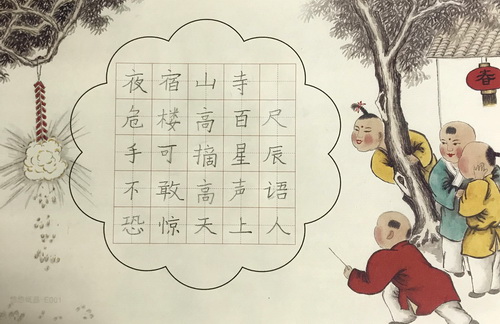 夜宿山寺
危楼高百尺
手可摘星辰
不敢高声语
恐惊天上人
春